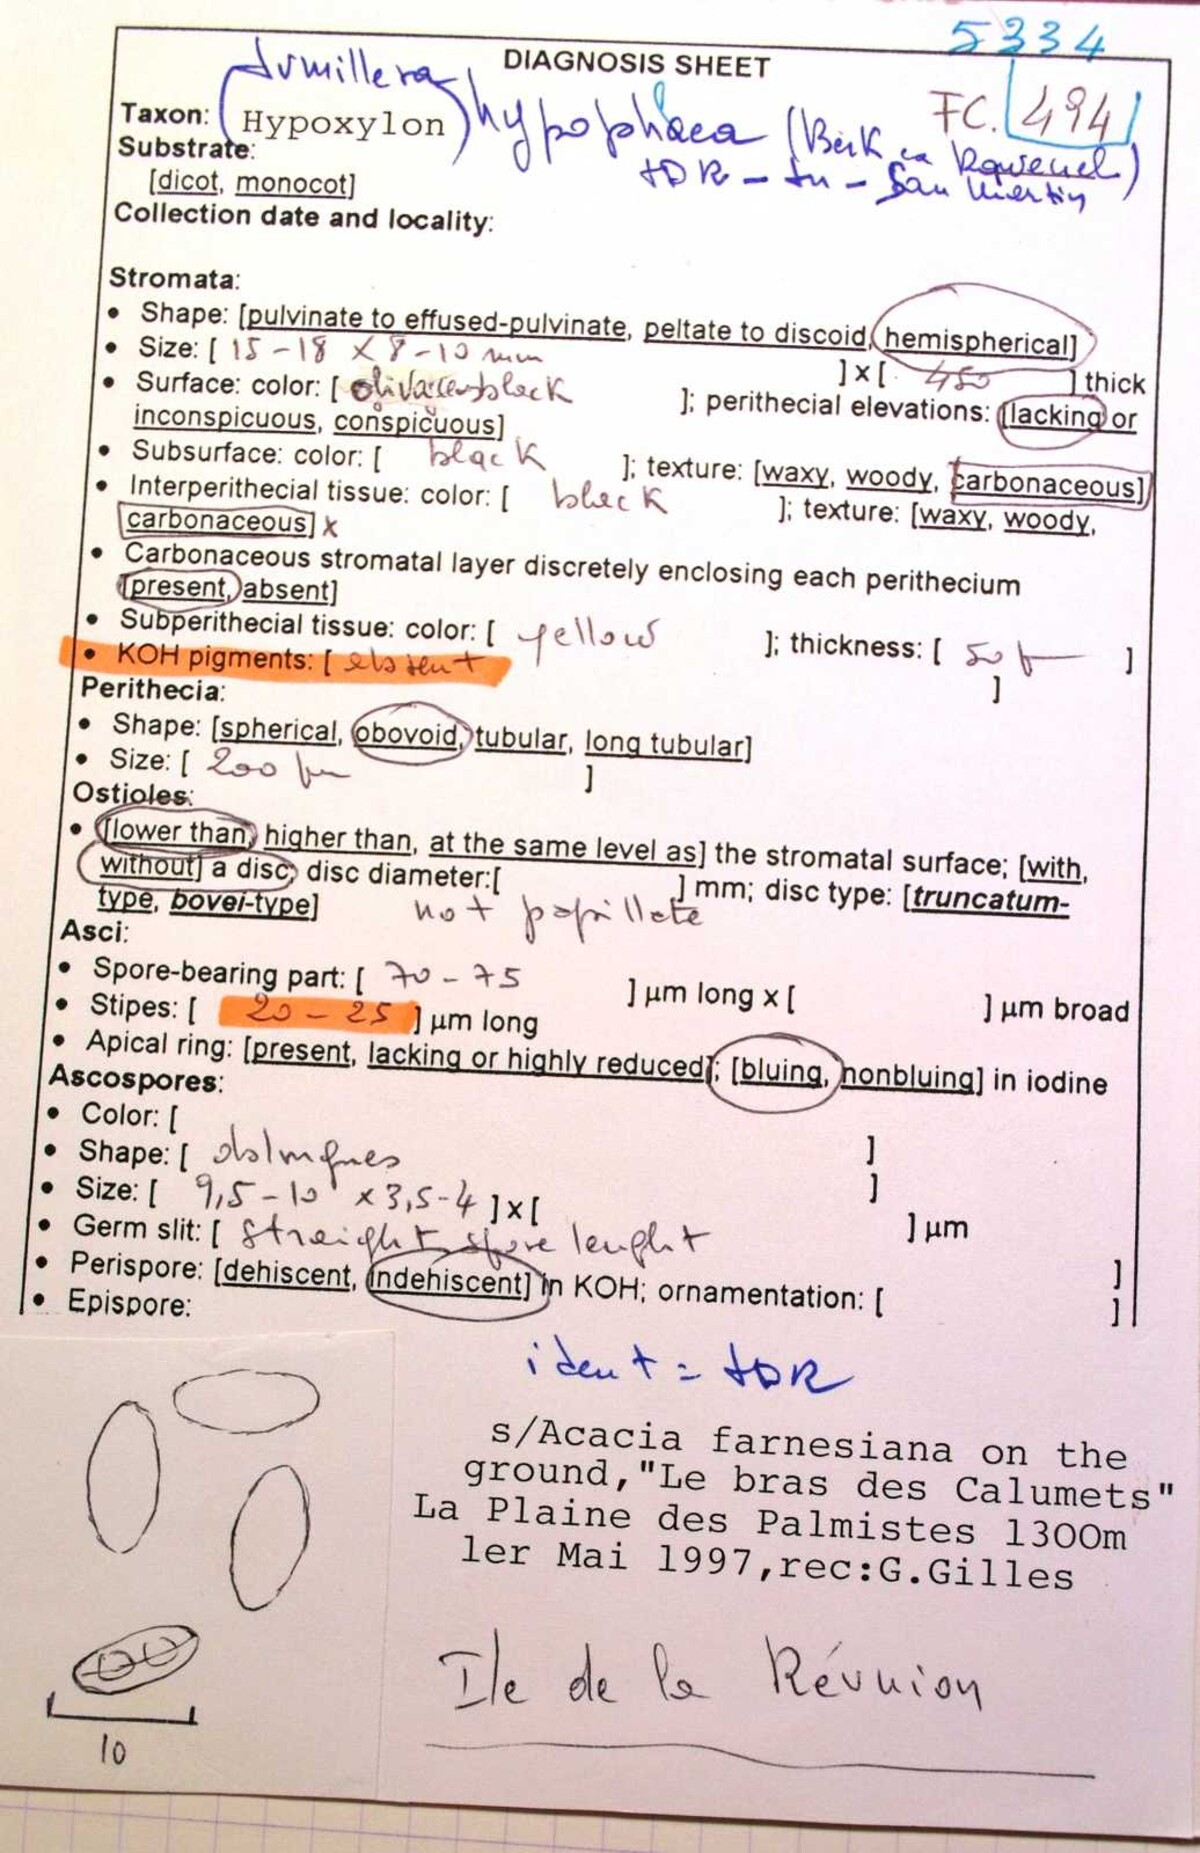 5334
DIAGNOSIS SHEET
FC. 494
Taxon: (Hypoxylon) hypophlaea (Berk
Substrate:
[dicot, monocot]
JDR - in - San Martin
Collection date and locality:
Stromata:
• Shape: [pulvinate to effused-pulvinate, peltate to discoid, hemispherical]
• Size: [ 15-18 x 8-10 mm ] x [ 450 ] thick
• Surface: color: [ olivaceus black ]; perithecial elevations: [lacking or
inconspicuous, conspicuous]
• Subsurface: color: [ black ]; texture: [waxy, woody, carbonaceous]
• Interperithecial tissue: color: [ black ]; texture: [waxy, woody,
carbonaceous] x
• Carbonaceous stromatal layer discretely enclosing each perithecium
[present, absent]
• Subperithecial tissue: color: [ yellow ]; thickness: [ 50 µ ]
• KOH pigments: [ absent ]
Perithecia:
• Shape: [spherical, obovoid, tubular, long tubular]
• Size: [ 200 µm ]
Ostioles:
• [lower than, higher than, at the same level as] the stromatal surface; [with,
without] a disc; disc diameter:[ ] mm; disc type: [truncatum-
type, bovei-type] not papillate
Asci:
• Spore-bearing part: [ 70-75 ] µm long x [ ] µm broad
• Stipes: [ 20-25 ] µm long
• Apical ring: [present, lacking or highly reduced]; [bluing, nonbluing] in iodine
Ascospores:
• Color: [ ]
• Shape: [ oblongues ]
• Size: [ 9,5-10 x 3,5-4 ] x [ ] µm
• Germ slit: [ straight, spore lenght ]
• Perispore: [dehiscent, indehiscent] in KOH; ornamentation: [ ]
• Epispore:
ident = JDR
s/Acacia farnesiana on the
ground,"Le bras des Calumets"
La Plaine des Palmistes 1300m
1er Mai 1997,rec:G.Gilles
Ile de la Réunion
10